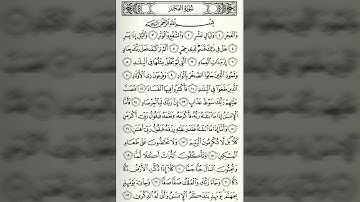 سُورَةُ الْفَجْرِ
بِسْمِ اللَّهِ الرَّحْمَٰنِ الرَّحِيمِ
وَالْفَجْرِ ١ وَلَيَالٍ عَشْرٍ ٢ وَالشَّفْعِ وَالْوَتْرِ ٣ وَاللَّيْلِ إِذَا يَسْرِ
٤ هَلْ فِي ذَٰلِكَ قَسَمٌ لِّذِي حِجْرٍ ٥ أَلَمْ تَرَ كَيْفَ فَعَلَ رَبُّكَ
بِعَادٍ ٦ إِرَمَ ذَاتِ الْعِمَادِ ٧ الَّتِي لَمْ يُخْلَقْ مِثْلُهَا فِي الْبِلَادِ ٨
وَثَمُودَ الَّذِينَ جَابُوا الصَّخْرَ بِالْوَادِ ٩ وَفِرْعَوْنَ ذِي الْأَوْتَادِ ١٠
الَّذِينَ طَغَوْا فِي الْبِلَادِ ١١ فَأَكْثَرُوا فِيهَا الْفَسَادَ ١٢ فَصَبَّ
عَلَيْهِمْ رَبُّكَ سَوْطَ عَذَابٍ ١٣ إِنَّ رَبَّكَ لَبِالْمِرْصَادِ ١٤ فَأَمَّا
الْإِنسَانُ إِذَا مَا ابْتَلَاهُ رَبُّهُ فَأَكْرَمَهُ وَنَعَّمَهُ فَيَقُولُ رَبِّي أَكْرَمَنِ
١٥ وَأَمَّا إِذَا مَا ابْتَلَاهُ فَقَدَرَ عَلَيْهِ رِزْقَهُ فَيَقُولُ رَبِّي أَهَانَنِ ١٦
كَلَّا بَل لَّا تُكْرِمُونَ الْيَتِيمَ ١٧ وَلَا تَحَاضُّونَ عَلَىٰ طَعَامِ
الْمِسْكِينِ ١٨ وَتَأْكُلُونَ التُّرَاثَ أَكْلًا لَّمًّا ١٩
وَتُحِبُّونَ الْمَالَ حُبًّا جَمًّا ٢٠ كَلَّا إِذَا دُكَّتِ الْأَرْضُ دَكًّا
دَكًّا ٢١ وَجَاءَ رَبُّكَ وَالْمَلَكُ صَفًّا صَفًّا ٢٢ وَجِيءَ يَوْمَئِذٍ
بِجَهَنَّمَ يَوْمَئِذٍ يَتَذَكَّرُ الْإِنسَانُ وَأَنَّىٰ لَهُ الذِّكْرَىٰ ٢٣